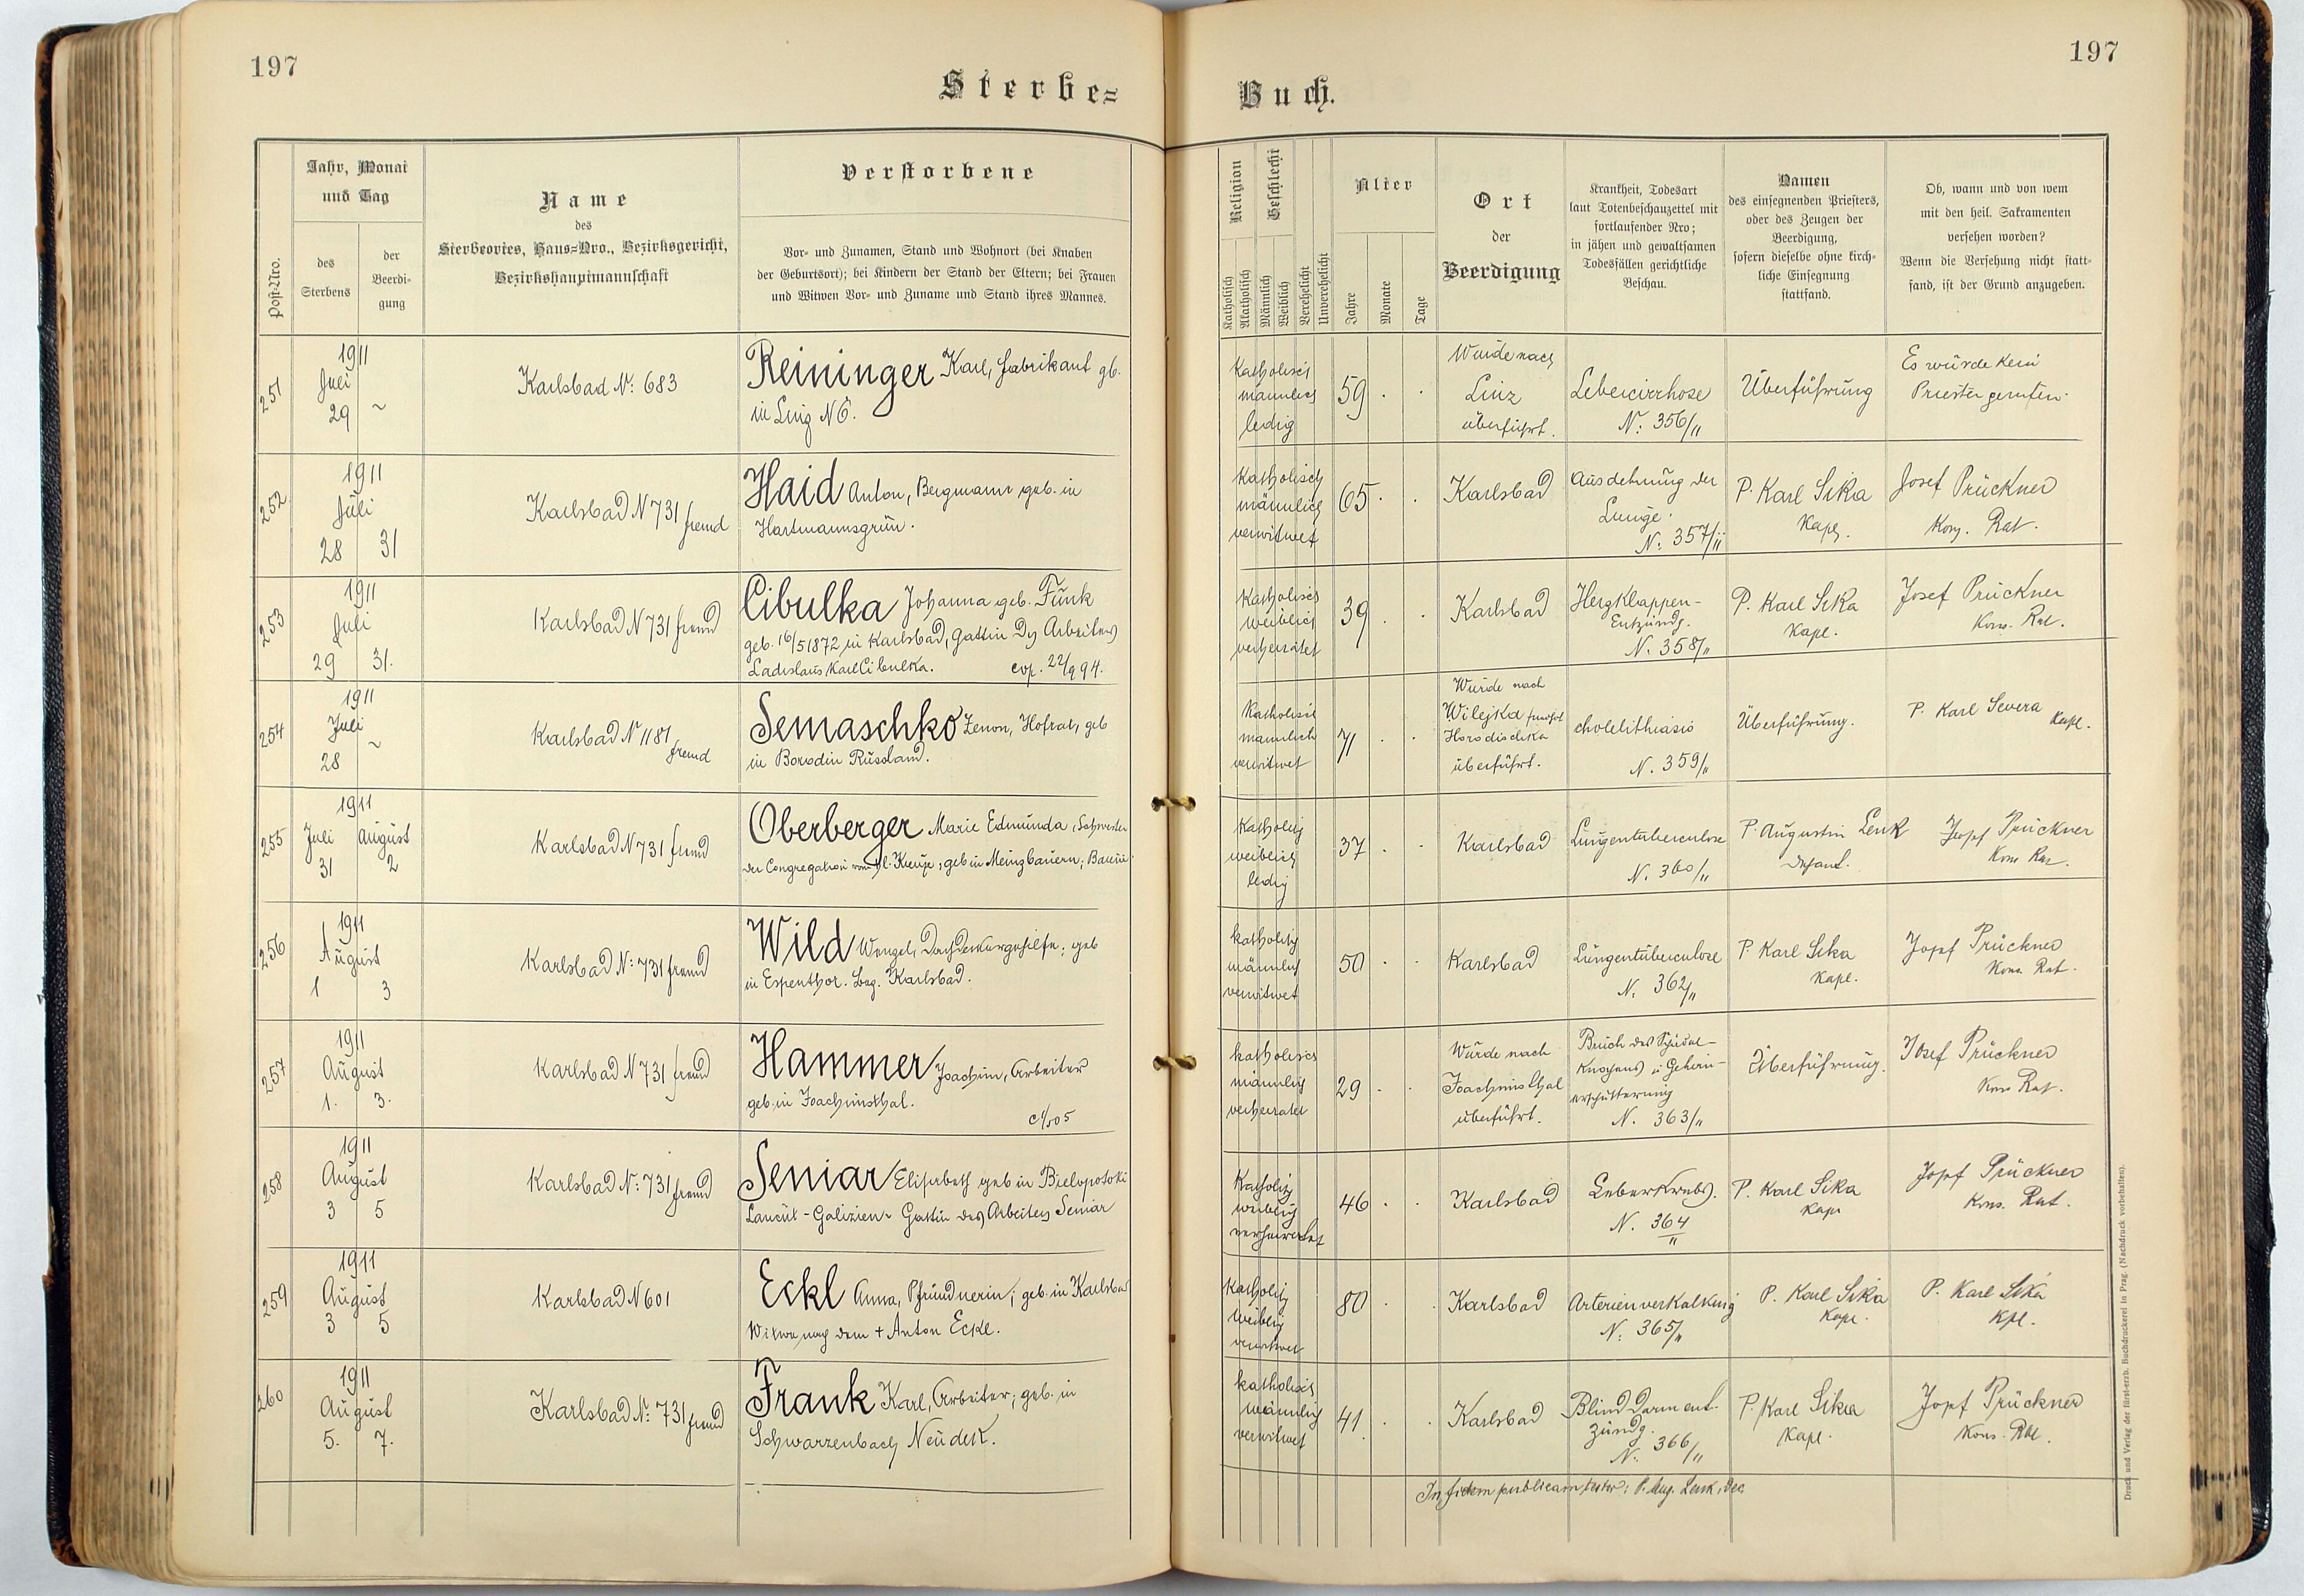 197
197
Sterbe=
Buch.
Post-Nro.
Jahr, Monat
und Tag
des
Sterbens
der
Beerdi-
gung
Name
des
Sterbeortes, Haus=Nro., Bezirksgericht,
Bezirkshauptmannschaft
Verstorbene
Vor- und Zunamen, Stand und Wohnort (bei Knaben
der Geburtsort); bei Kindern der Stand der Eltern; bei Frauen
und Witwen Vor- und Zuname und Stand ihres Mannes.
Religion
Katholisch
Akatholisch
Geschlecht
Männlich
Weiblich
Verehelicht
Unverehelicht
Alter
Jahre
Monate
Tage
Ort
der
Beerdigung
Krankheit, Todesart
laut Totenbeschauzettel mit
fortlaufender Nro;
in jähen und gewaltsamen
Todesfällen gerichtliche
Beschau.
Namen
des einsegnenden Priesters,
oder des Zeugen der
Beerdigung,
sofern dieselbe ohne kirch-
liche Einsegnung
stattfand.
Ob, wann und von wem
mit den heil. Sakramenten
versehen worden?
Wenn die Versehung nicht statt-
fand, ist der Grund anzugeben.
251
1911
Juli
29 ~
Karlsbad N: 683
Reininger Karl, Fabrikant gb.
in Linz NÖ.
Katholisch
männlich
ledig
59 . .
Wurde nach
Linz
überführt.
Lebercirrhose
N: 356/11
Überführung
Es wurde kein
Priester gerufen.
252
1911
Juli
28 31
Karlsbad N 731 fremd
Haid Anton, Bergmann geb. in
Hartmannsgrün.
Katholisch
männlich
verwitwet
65 . .
Karlsbad
Ausdehnung der
Lunge.
N: 357/11
P. Karl Sika
Kapl.
Josef Prückner
Kons. Rat.
253
1911
Juli
29 31.
Karlsbad N 731 fremd
Cibulka Johanna geb. Funk
geb. 16/5 1872 in Karlsbad, Gattin des Arbeiters
Ladislaus Karl Cibulka. cop. 22/9 94.
Katholisch
weiblich
verheiratet
39 . .
Karlsbad
Herzklappen-
Entzündg.
N. 358/11
P. Karl Sika
Kapl.
Josef Prückner
Kons. Rat.
254
1911
Juli
28 ~
Karlsbad N 1181
fremd
Semaschko Zenon, Hofrat, geb
in Borodin Russland.
Katholisch
männlich
verwitwet
71 . .
Wurde nach
Wilejka
Horodischka
überführt.
cholelithiasis
N. 359/11
Überführung.
P. Karl Severa
Kapl.
255
1911
Juli August
31 2
Karlsbad N 731 fremd
Oberberger Marie Edmunda, Schwester
der Congregation vom hl. Kreuze, geb in Meinzbauern, Baiern
Katholisch
weiblich
ledig
37 . .
Karlsbad
Lungentuberculose
N. 360/11
P. Augustin Lenk
Dechant.
Josef Prückner
Kons Rat.
256
1911
August
1 3
Karlsbad N: 731 fremd
Wild Wenzel, Dachdeckergehilfe, geb
in Espenthor. Bez. Karlsbad.
katholisch
männlich
verwitwet
50 . .
Karlsbad
Lungentuberculose
N. 362/11
P. Karl Sika
Kapl.
Josef Prückner
Kons. Rat.
257
1911
August
1. 3.
Karlsbad N 731 fremd
Hammer Joachim, Arbeiter
geb. in Joachimsthal.
Katholisch
männlich
verheiratet
29 . .
Wurde nach
Joachimsthal
überführt.
Bruch des Schädel-
Knochens u Gehirn-
erschütterung
N. 363/11
Überführung.
Josef Prückner
Kons Rat.
258
1911
August
3 5
Karlsbad N: 731 fremd
Seniar Elisabeth geb in Bielopotoki
Lancut - Galizien - Gattin des Arbeiters Seniar
Katholisch
weiblich
verheiratet
46 . .
Karlsbad
Leberkrebs.
N. 364/11
P. Karl Sika
Kapl
Josef Prückner
Kons. Rat.
259
1911
August
3 5
Karlsbad N 601
Eckl Anna, Pfründnerin; geb. in Karlsbad
Witwe nach dem + Anton Eckl.
Katholisch
weiblich
verwitwet
80 . .
Karlsbad
Arterienverkalkung
N: 365/11
P. Karl Sika
Kapl.
P. Karl Sika
Kpl.
260
1911
August
5. 7.
Karlsbad N: 731 fremd
Frank Karl, Arbeiter; geb. in
Schwarzenbach Neudek.
Katholisch
männlich
verwitwet
41 . .
Karlsbad
Blinddarment-
zündg.
N. 366/11
P. Karl Sika
Kapl.
Josef Prückner
Kons. Rat.
In fidem publicam testor: P. Aug. Lenk, Dec.
Druck und Verlag der fürst-erzb. Buchdruckerei in Prag. (Nachdruck vorbehalten).